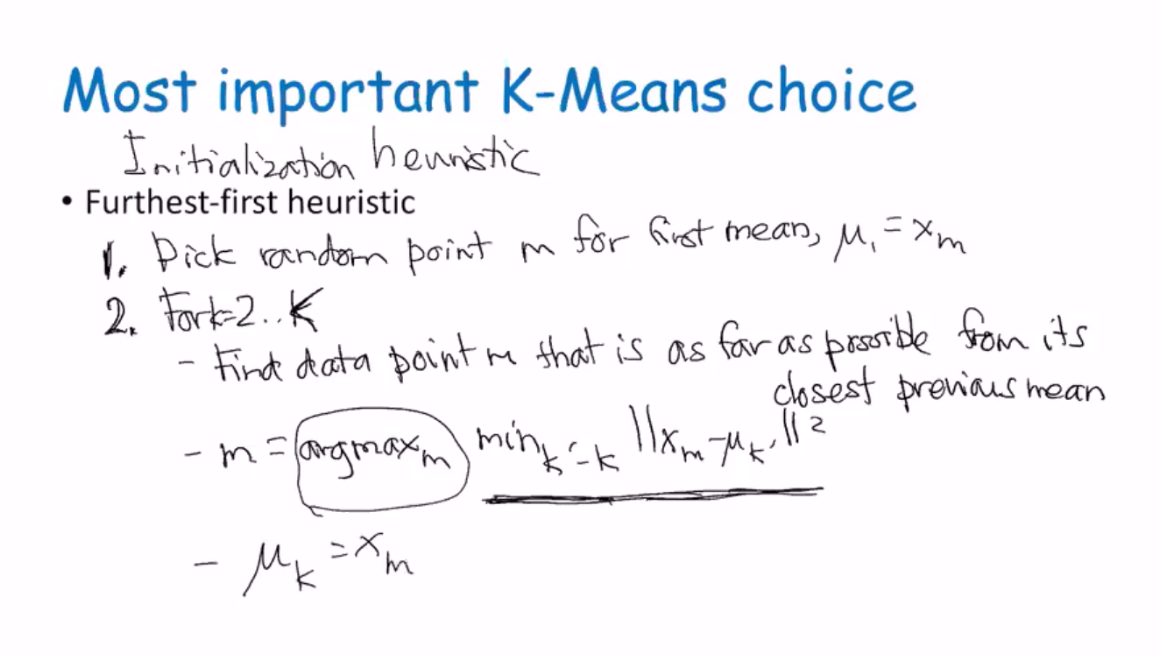 Most important K-Means choice
Initialization heuristic
• Furthest-first heuristic
1. Pick random point m for first mean, μ₁ = xₘ
2. For k=2..K
- Find data point m that is as far as possible from its
closest previous mean
- m = argmaxₘ min k'-k ||xₘ-μₖ'||²
- μₖ = xₘ